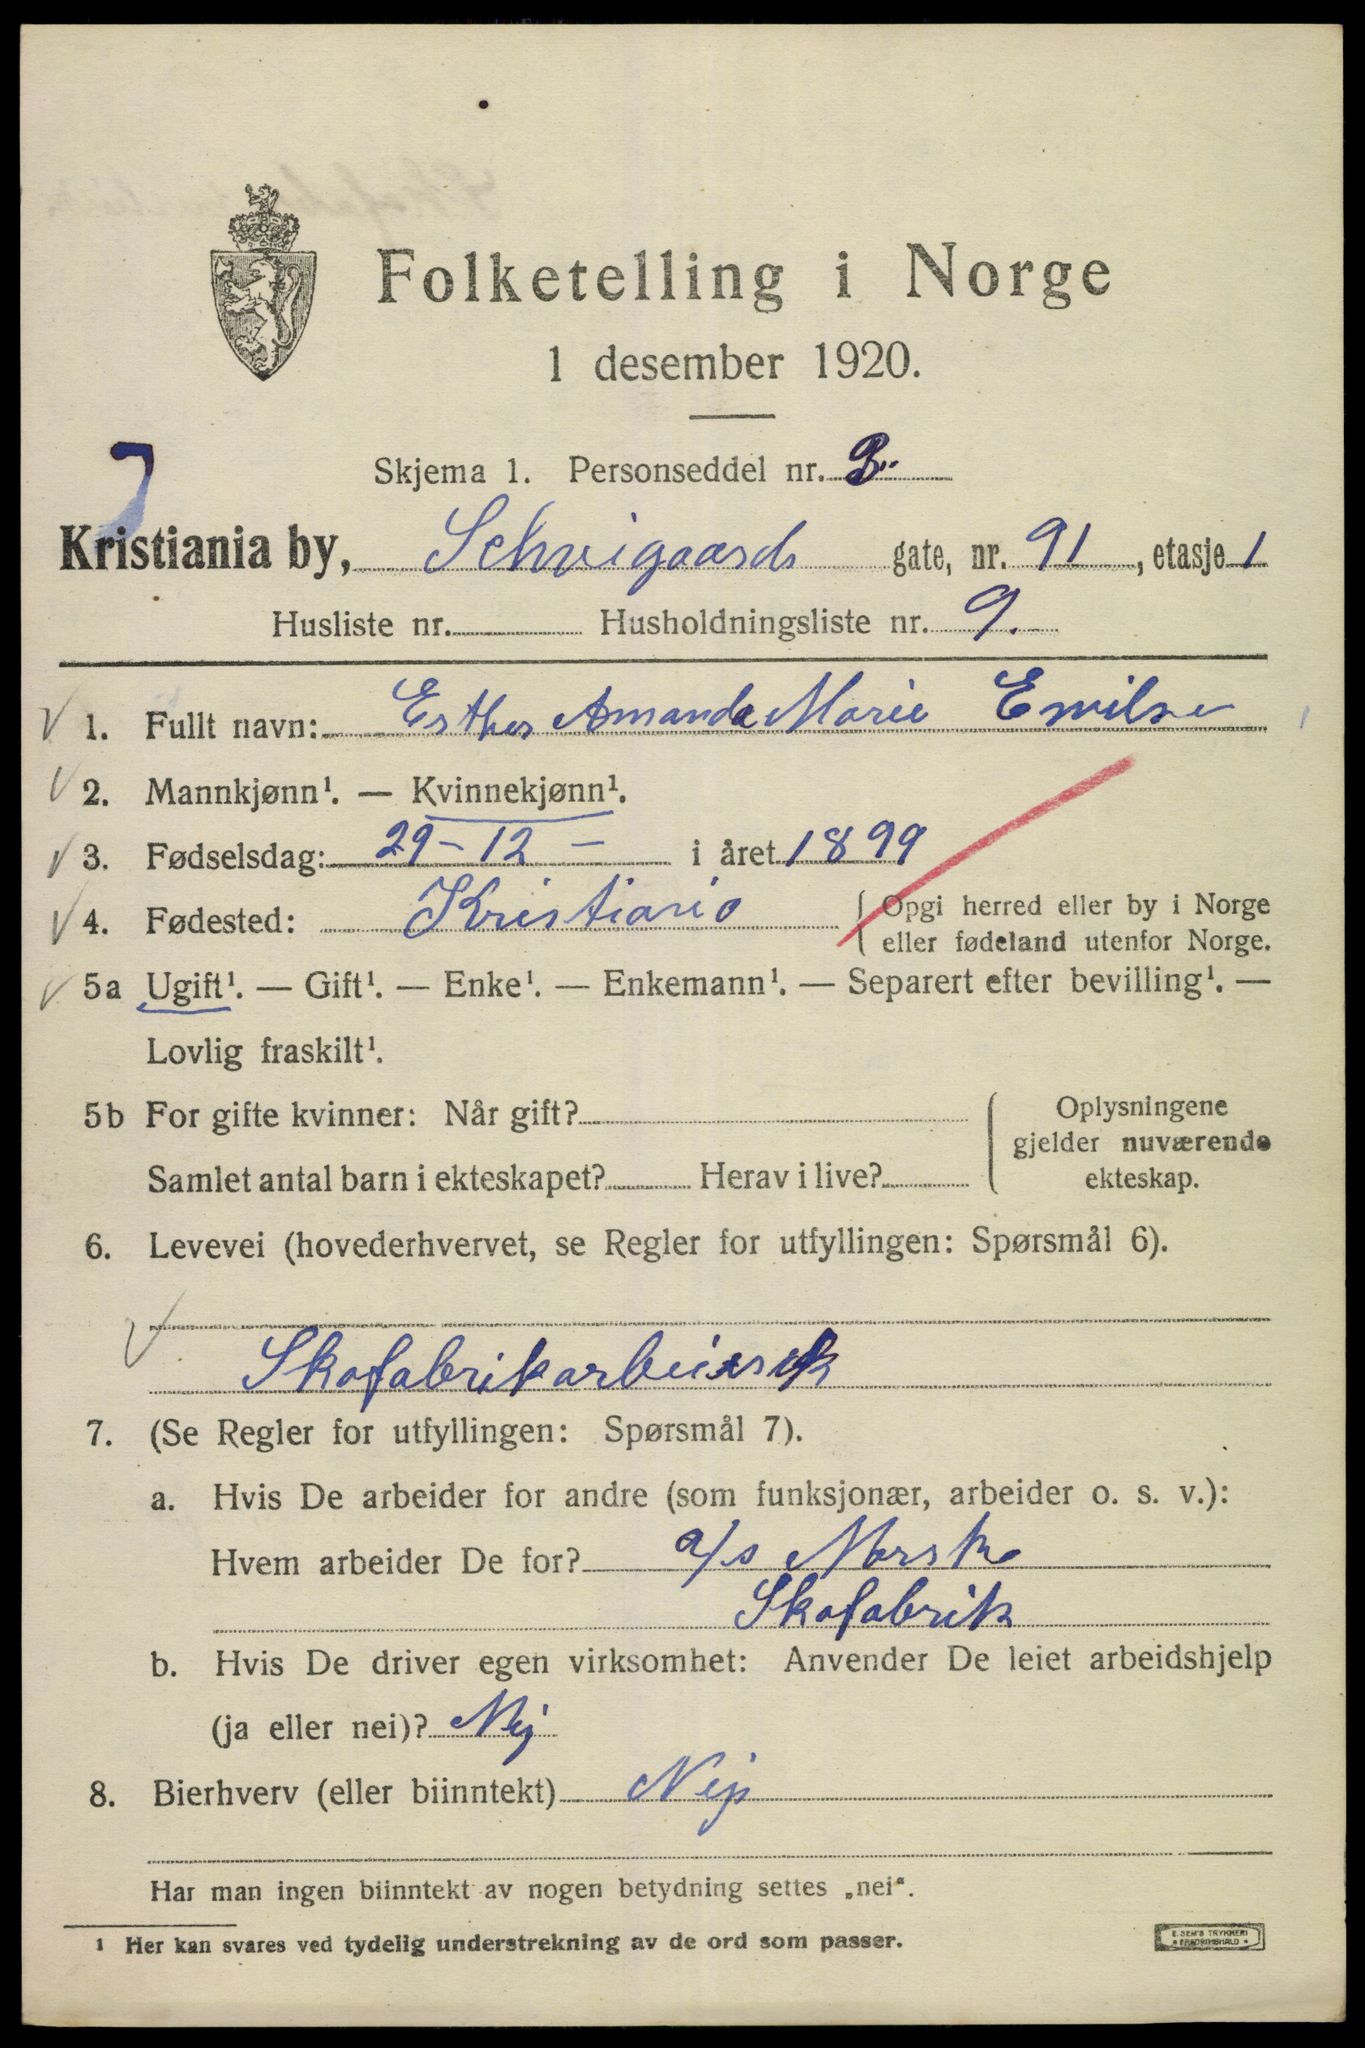 Folketelling i Norge
1 desember 1920.
Skjema 1. Personseddel nr.
Kristiania by, Schveigaards gate, nr. 91, etasje 1
Husliste nr. Husholdningsliste nr. 9.
1. Fullt navn: Esther Amanda Marie Emilse
2. Mannkjønn¹. — Kvinnekjønn¹.
3. Fødselsdag: 29-12- i året 1899
4. Fødested: Kristiania { Opgi herred eller by i Norge
eller fødeland utenfor Norge.
5a Ugift¹. — Gift¹. — Enke¹. — Enkemann¹. — Separert efter bevilling¹. —
Lovlig fraskilt¹.
5b For gifte kvinner: Når gift? Oplysningene
gjelder nuværende
Samlet antal barn i ekteskapet? Herav i live? ekteskap.
6. Levevei (hovederhvervet, se Regler for utfyllingen: Spørsmål 6).
7. (Se Regler for utfyllingen: Spørsmål 7).
a. Hvis De arbeider for andre (som funksjonær, arbeider o. s. v.):
Hvem arbeider De for? a/s Norsk
Skofabrik
b. Hvis De driver egen virksomhet: Anvender De leiet arbeidshjelp
(ja eller nei)? Nej
8. Bierhverv (eller biinntekt) Nej
Har man ingen biinntekt av nogen betydning settes „nei“.
¹ Her kan svares ved tydelig understrekning av de ord som passer.
E. SEM'S TRYKKERI
FREDRIKSHALD